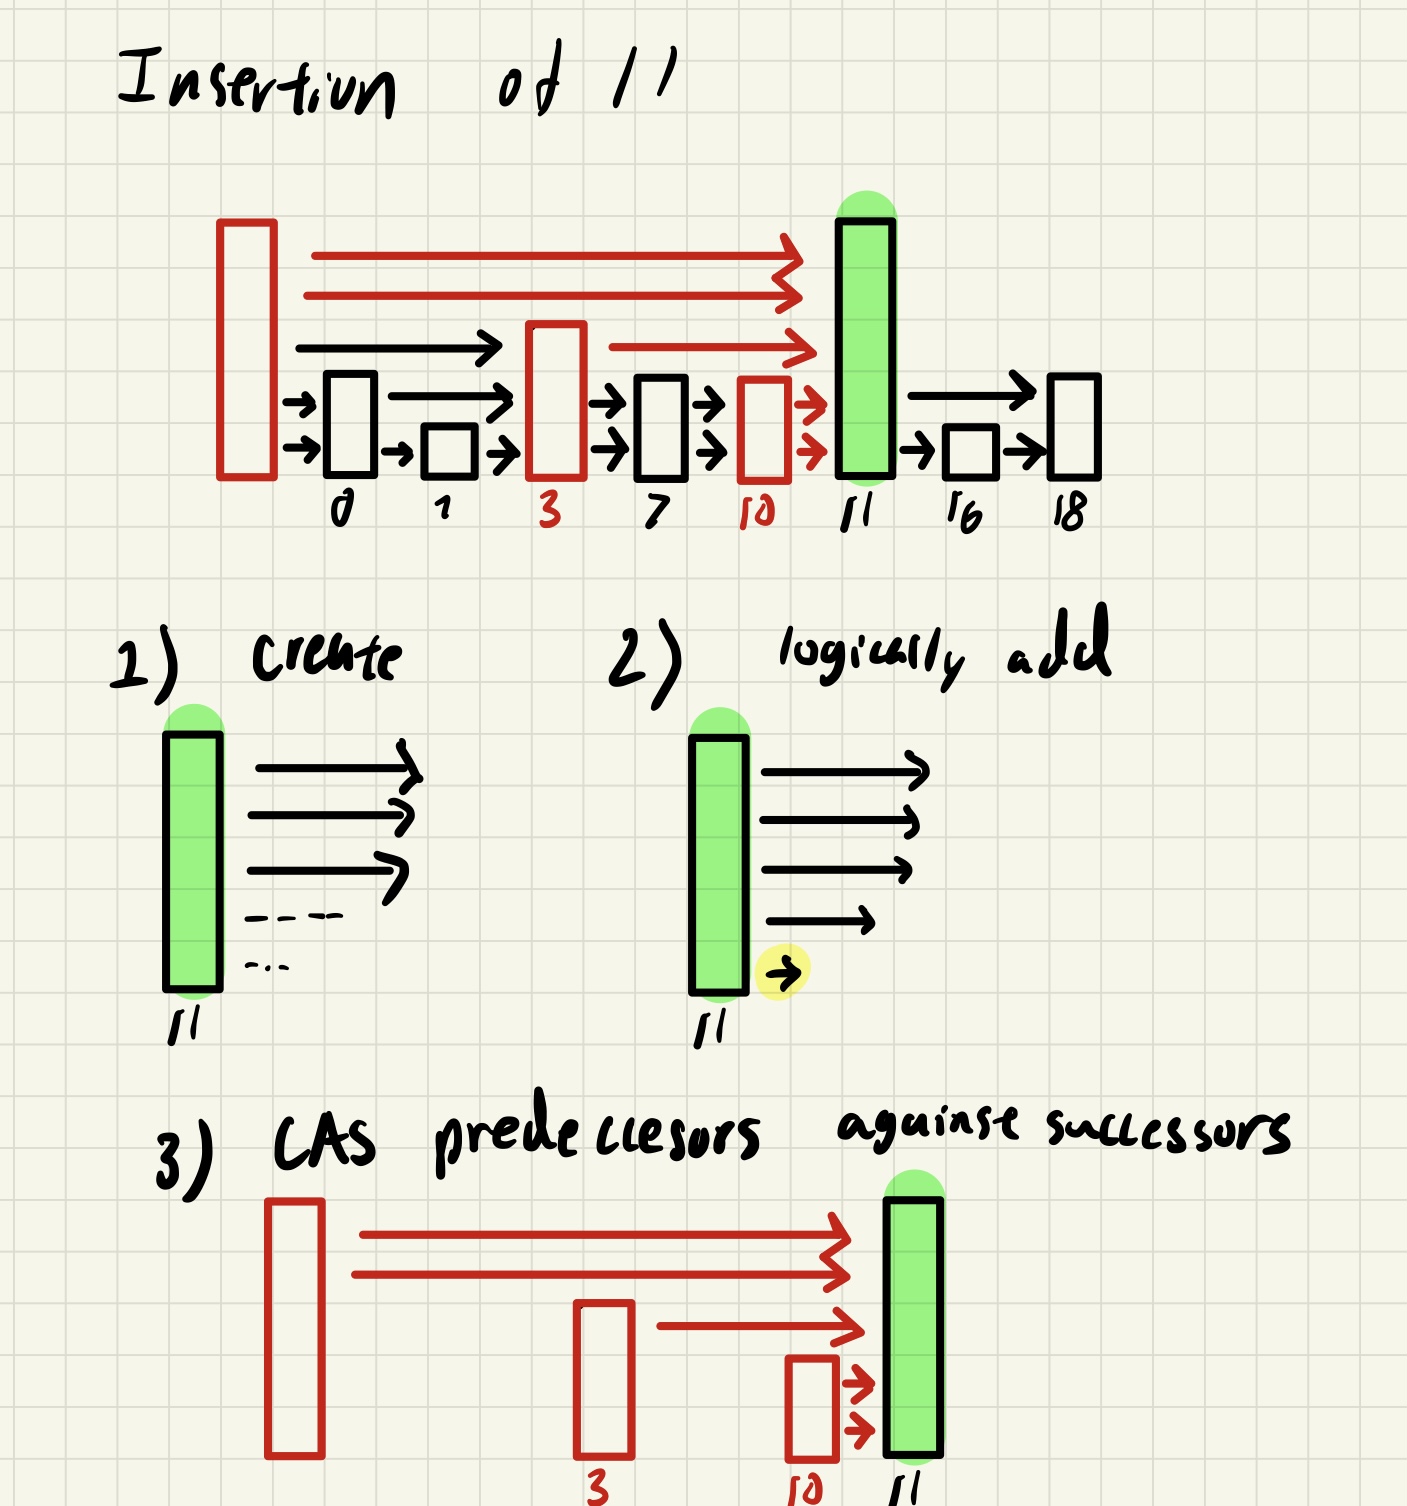 Insertion of 11
0 1 3 7 10 11 16 18
1) create 2) logically add
11 11
3) CAS predeccesors against successors
3 10 11